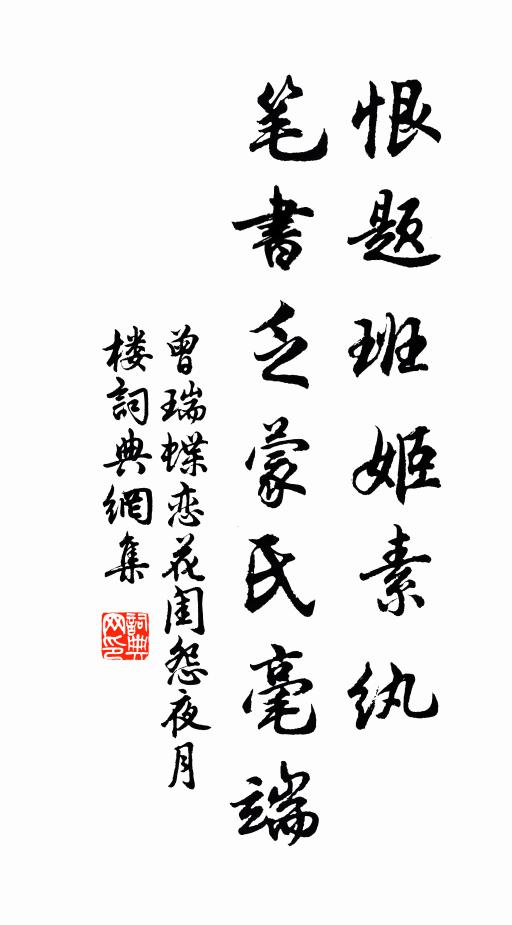 恨题班姬素纨
笔書乏蒙氏毫端
曾瑞蝶恋花闺怨夜月
楼詞典網集
詞典网印